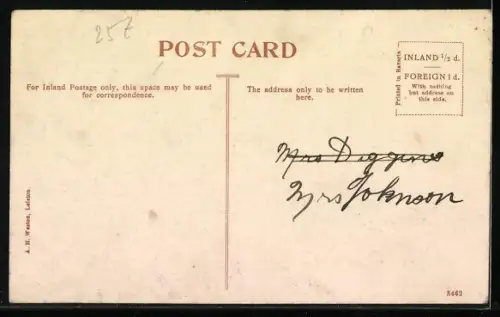 25t
POST CARD
For Inland Postage only, this space may be used
for correspondence.
The address only to be written
here.
Printed in Bavaria
INLAND ½ d.
FOREIGN 1 d.
With nothing
but address on
this side.
Mrs Diggins
Mrs Johnson
A. H. Weston, Leiston.
3462